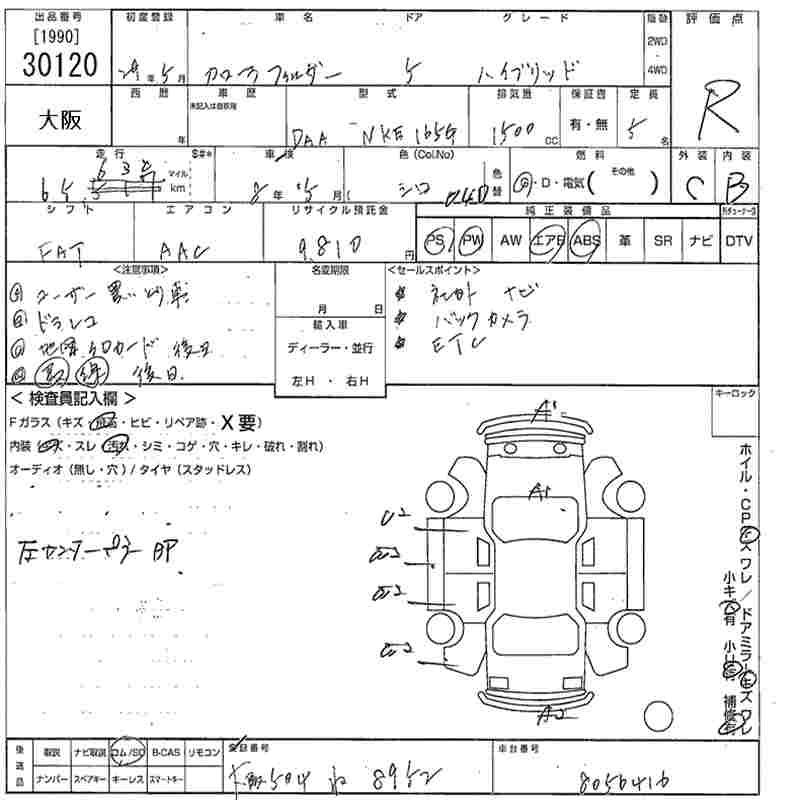 出品番号 初度登録 車名 ドア グレード 駆動 評価点
[1990]
30120
29年5月 カローラフィルダー 5 ハイブリッド 2WD 4WD R
大阪
西暦 年 車歴 未記入は自家用 型式 排気量 保証書 定員
DAA NKE165G 1500 CC 有・無 5名
走行 $#* 車検 色(Col.No) 燃料 外装 内装
マイル km 8年5月 シロ 040 色替 G・D・電気( その他 ) C B
シフト エアコン リサイクル預託金 純正装備品
FAT AAC 9,810円 PS PW AW エアB ABS 革 SR ナビ DTV
<注意事項> 名変期限 <セールスポイント>
ユーザー買い取り車 月 日 ナビ
ドラレコ 輸入車 バックカメラ
地図SDカード 後日 ディーラー・並行 ETC
後日 左H・右H
<検査員記入欄> キーロック
Fガラス(キズ・飛石・ヒビ・リペア跡・X要)
内装(キズ・スレ・汚れ・シミ・コゲ・穴・キレ・破れ・割れ)
オーディオ(無し・穴)/タイヤ(スタッドレス)
左センターピラーBP
A1
A1
U2
A2
ホイル・CPキズワレ/ドアミラーキズワレ
小キズ有 小凹有 補修有
後送品 取説 ナビ取説 ロム/SD B-CAS リモコン 登録番号 車台番号
ナンバー スペアキー キーレス スマートキー 大阪504 8952 8056416